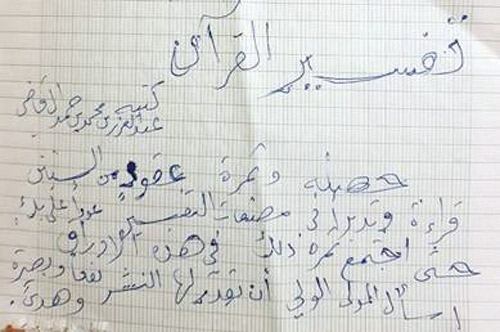 تفسير القرآن
كتبه
عبدالعزيز بن محمد بن حمد القاضي
حصيلة وثمرة عقود من السنين
قراءة وتدبرا في مصنفات التفسير عودا على بدء
حتى اجتمع ثمرة ذلك في هذه الأوراق
أسأل المولى الولي أن يقدر لها النشر نفعا وبصيرة
وهدى.